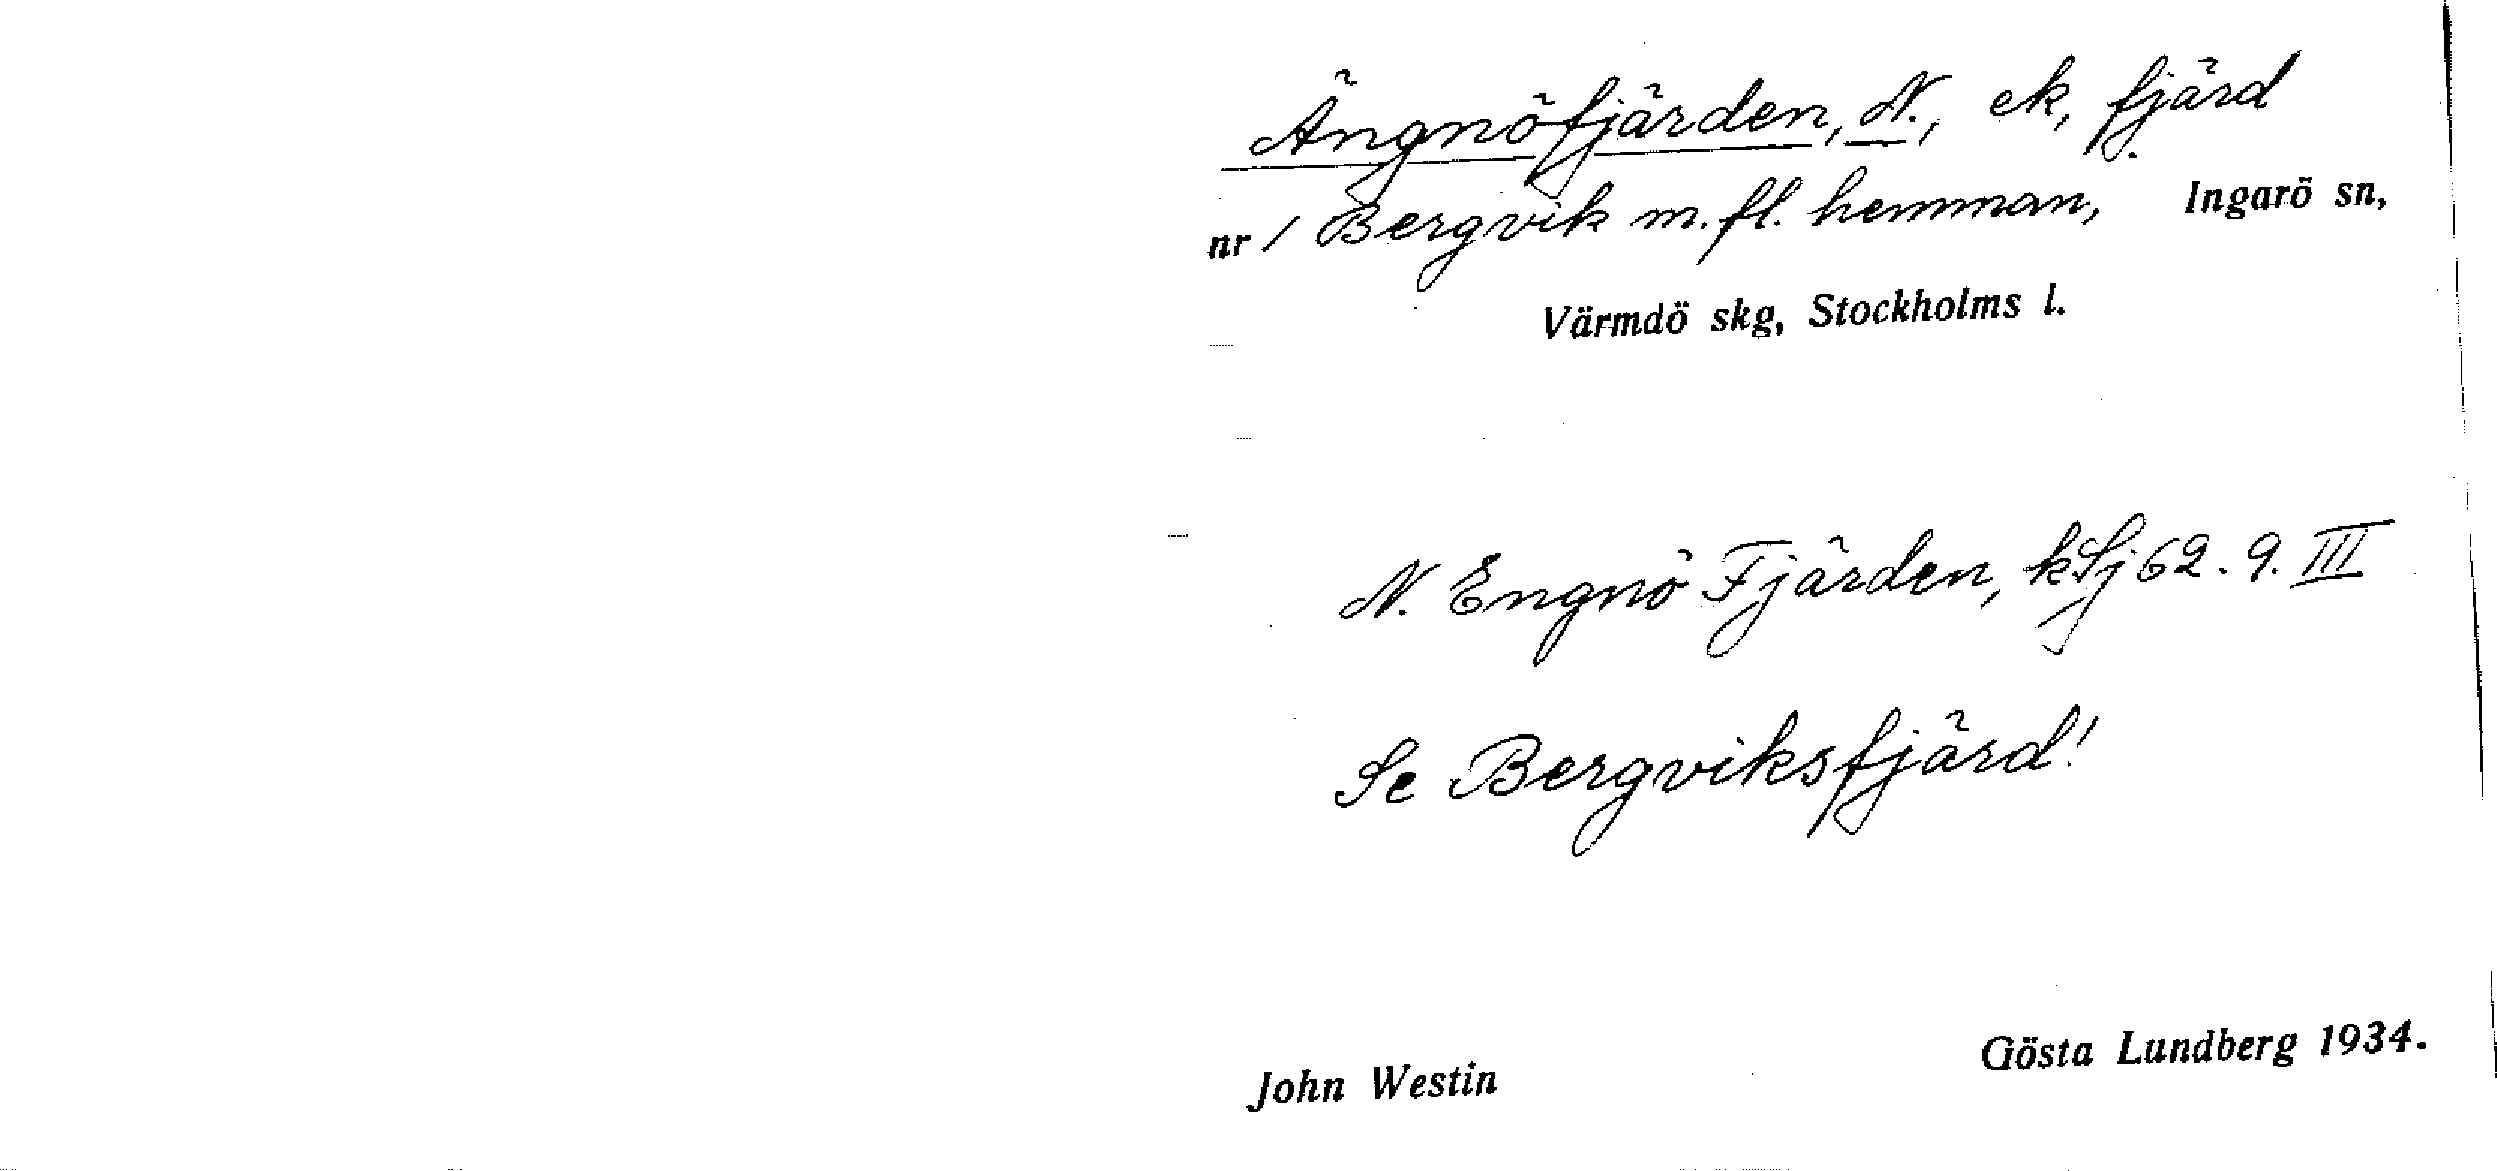 Ängnöfjärden, N., ek, fjärd
nr 1 Bergvik m. fl. hemman, Ingarö sn,
Värmdö skg, Stockholms l.
N. Engnö Fjärden, kSj 62. 9. III
Se Bergviksfjärd!
John Westin Gösta Lundberg 1934.